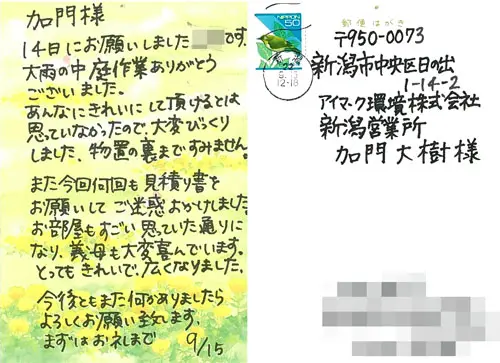 加門様
14日にお願いしました です。
大雨の中庭作業ありがとう
ございました。
あんなにきれいにして頂けるとは
思っていなかったので大変びっくり
しました。物置の裏まですみません。
また今回何回も見積り書を
お願いしてご迷惑おかけしました
お部屋もすごい思っていた通りに
なり、義母も大変喜んでいます。
とってもきれいで、広くなりました。
今後ともまた何かありましたら
よろしくお願い致します。
まずはお礼まで
9/15
NIPPON
50
12-18
郵便はがき
〒950-0073
新潟市中央区日の出
1-14-2
アイマーク環境株式会社
新潟営業所
加門大樹様